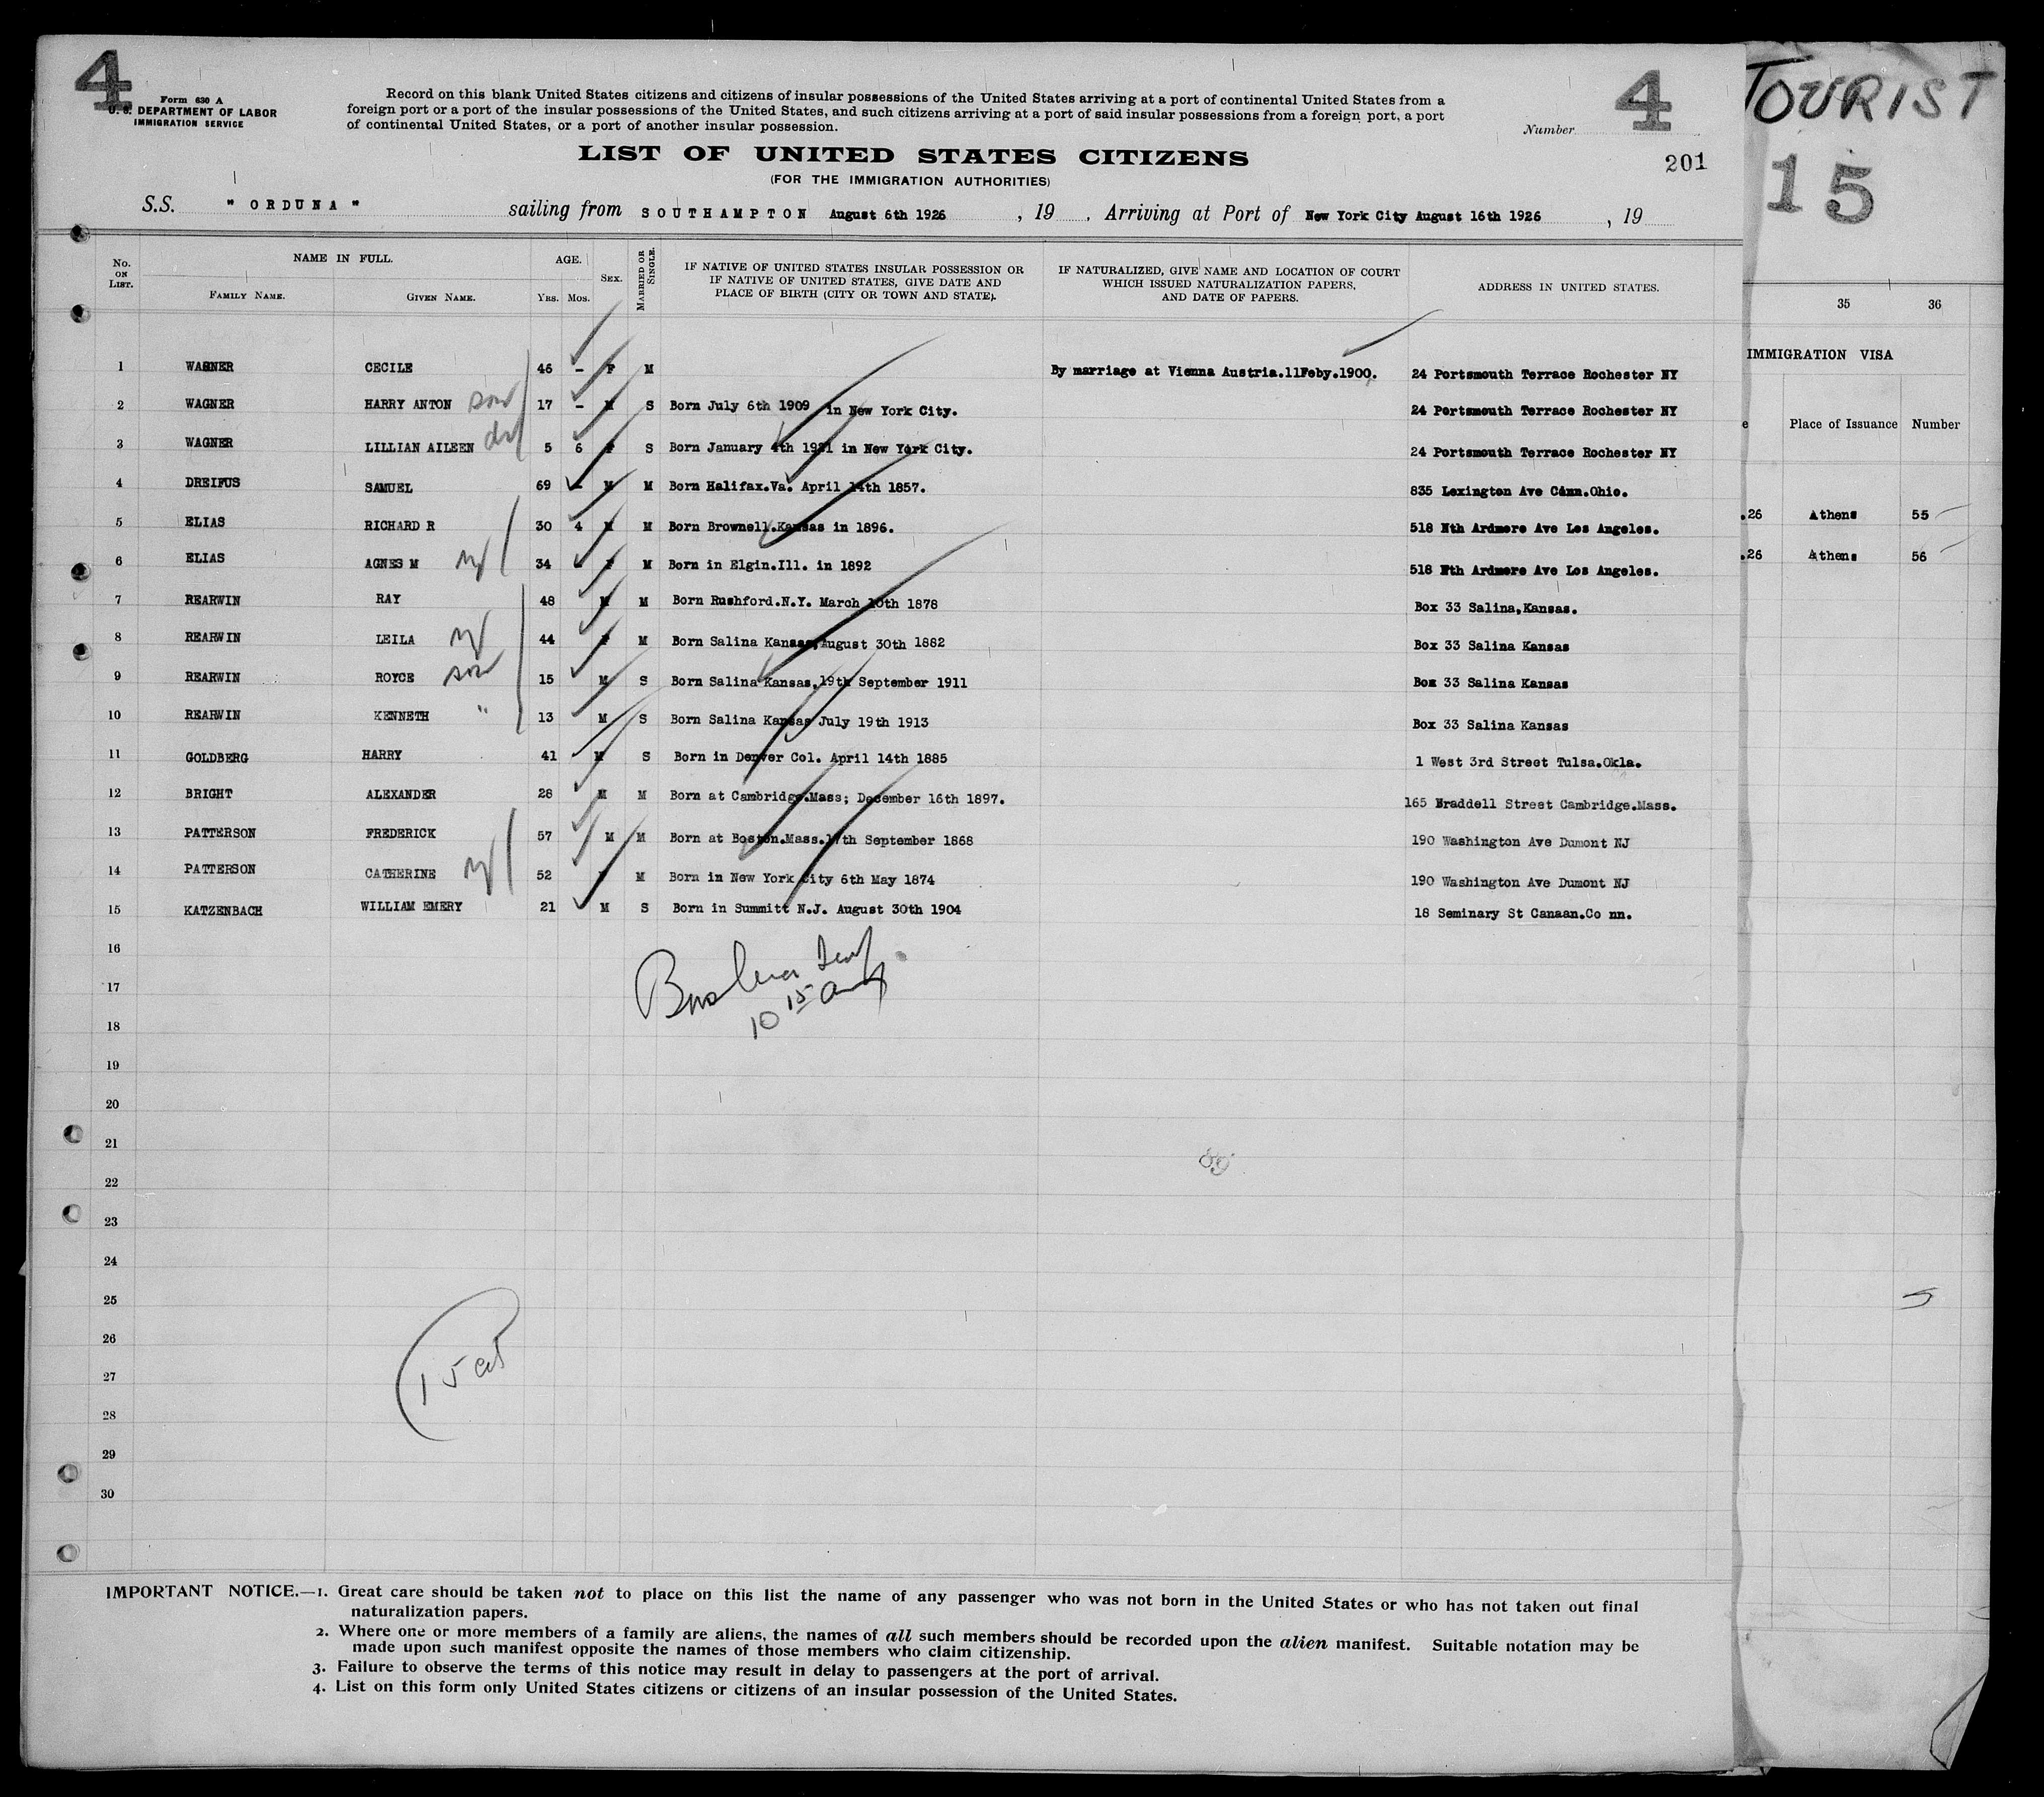 4
Form 630 A
U. S. DEPARTMENT OF LABOR
IMMIGRATION SERVICE
Record on this blank United States citizens and citizens of insular possessions of the United States arriving at a port of continental United States from a
foreign port or a port of the insular possessions of the United States, and such citizens arriving at a port of said insular possessions from a foreign port, a port
of continental United States, or a port of another insular possession.
Number 4
201
LIST OF UNITED STATES CITIZENS
(FOR THE IMMIGRATION AUTHORITIES)
S.S. " ORDUNA " sailing from SOUTHAMPTON August 6th 1926 , 19 , Arriving at Port of New York City August 16th 1926 , 19
No. ON LIST. NAME IN FULL. FAMILY NAME. GIVEN NAME. AGE. YRS. MOS. SEX. MARRIED OR SINGLE. IF NATIVE OF UNITED STATES INSULAR POSSESSION OR IF NATIVE OF UNITED STATES, GIVE DATE AND PLACE OF BIRTH (CITY OR TOWN AND STATE). IF NATURALIZED, GIVE NAME AND LOCATION OF COURT WHICH ISSUED NATURALIZATION PAPERS, AND DATE OF PAPERS. ADDRESS IN UNITED STATES.
1 WAGNER CECILE 46 - F M By marriage at Vienna Austria.11Feby.1900. 24 Portsmouth Terrace Rochester NY
2 WAGNER HARRY ANTON son 17 - M S Born July 6th 1909 in New York City. 24 Portsmouth Terrace Rochester NY
3 WAGNER LILLIAN AILEEN 5 6 F S Born January 4th 1921 in New York City. 24 Portsmouth Terrace Rochester NY
4 DREIFUS SAMUEL 69 - M M Born Halifax.Va. April 14th 1857. 835 Lexington Ave Cinn.Ohio.
5 ELIAS RICHARD R 30 4 M M Born Brownell.Kansas in 1896. 518 Nth Ardmore Ave Los Angeles.
6 ELIAS AGNES M wf 34 - F M Born in Elgin.Ill. in 1892 518 Nth Ardmore Ave Los Angeles.
7 REARWIN RAY 48 M M Born Rushford.N.Y. March 10th 1878 Box 33 Salina,Kansas.
8 REARWIN LEILA wf 44 F M Born Salina Kansas,August 30th 1882 Box 33 Salina Kansas
9 REARWIN ROYCE son 15 M S Born Salina Kansas,19th September 1911 Box 33 Salina Kansas
10 REARWIN KENNETH " 13 M S Born Salina Kansas July 19th 1913 Box 33 Salina Kansas
11 GOLDBERG HARRY 41 M S Born in Denver Col. April 14th 1885 1 West 3rd Street Tulsa.Okla.
12 BRIGHT ALEXANDER 28 M M Born at Cambridge.Mass; December 16th 1897. 165 Braddell Street Cambridge.Mass.
13 PATTERSON FREDERICK 57 M M Born at Boston.Mass.17th September 1868 190 Washington Ave Dumont NJ
14 PATTERSON CATHERINE wf 52 F M Born in New York City 6th May 1874 190 Washington Ave Dumont NJ
15 KATZENBACH WILLIAM EMERY 21 M S Born in Summitt N.J. August 30th 1904 18 Seminary St Canaan.Co nn.
16
17
10 15
18
19
20
21
22
23
24
25
26
27
28
29
30
IMPORTANT NOTICE.—1. Great care should be taken not to place on this list the name of any passenger who was not born in the United States or who has not taken out final
naturalization papers.
2. Where one or more members of a family are aliens, the names of all such members should be recorded upon the alien manifest. Suitable notation may be
made upon such manifest opposite the names of those members who claim citizenship.
3. Failure to observe the terms of this notice may result in delay to passengers at the port of arrival.
4. List on this form only United States citizens or citizens of an insular possession of the United States.
TOURIST
15
35 36
IMMIGRATION VISA
e Place of Issuance Number
.26 Athens 55
.26 Athens 56